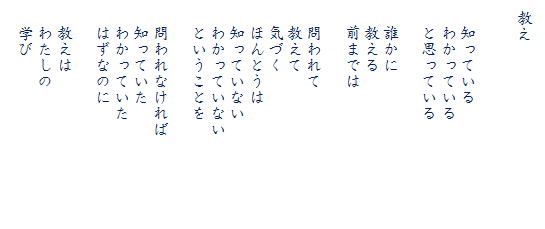 教え
知っている
わかっている
と思っている
誰かに
教える
前までは
問われて
教えて
気づく
ほんとうは
知っていない
わかっていない
ということを
問われなければ
知っていた
わかっていた
はずなのに
教えは
わたしの
学び